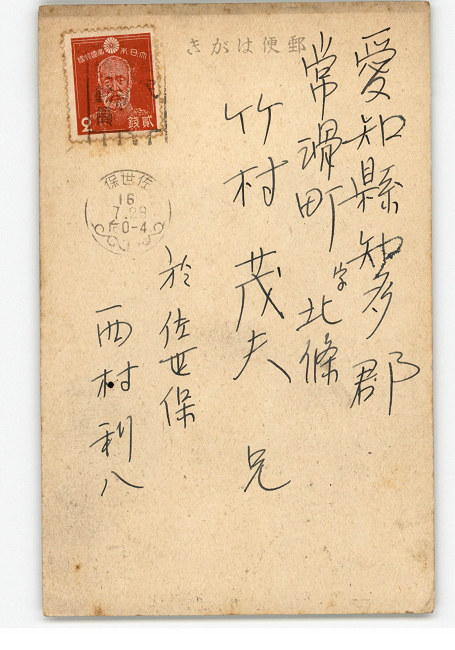 きがは便郵
愛知縣知多郡
常滑町字北條
竹村茂夫 兄
於佐世保
西村利八
大日本帝國郵便
貳錢
2
保世佐
16
7.29
0-4